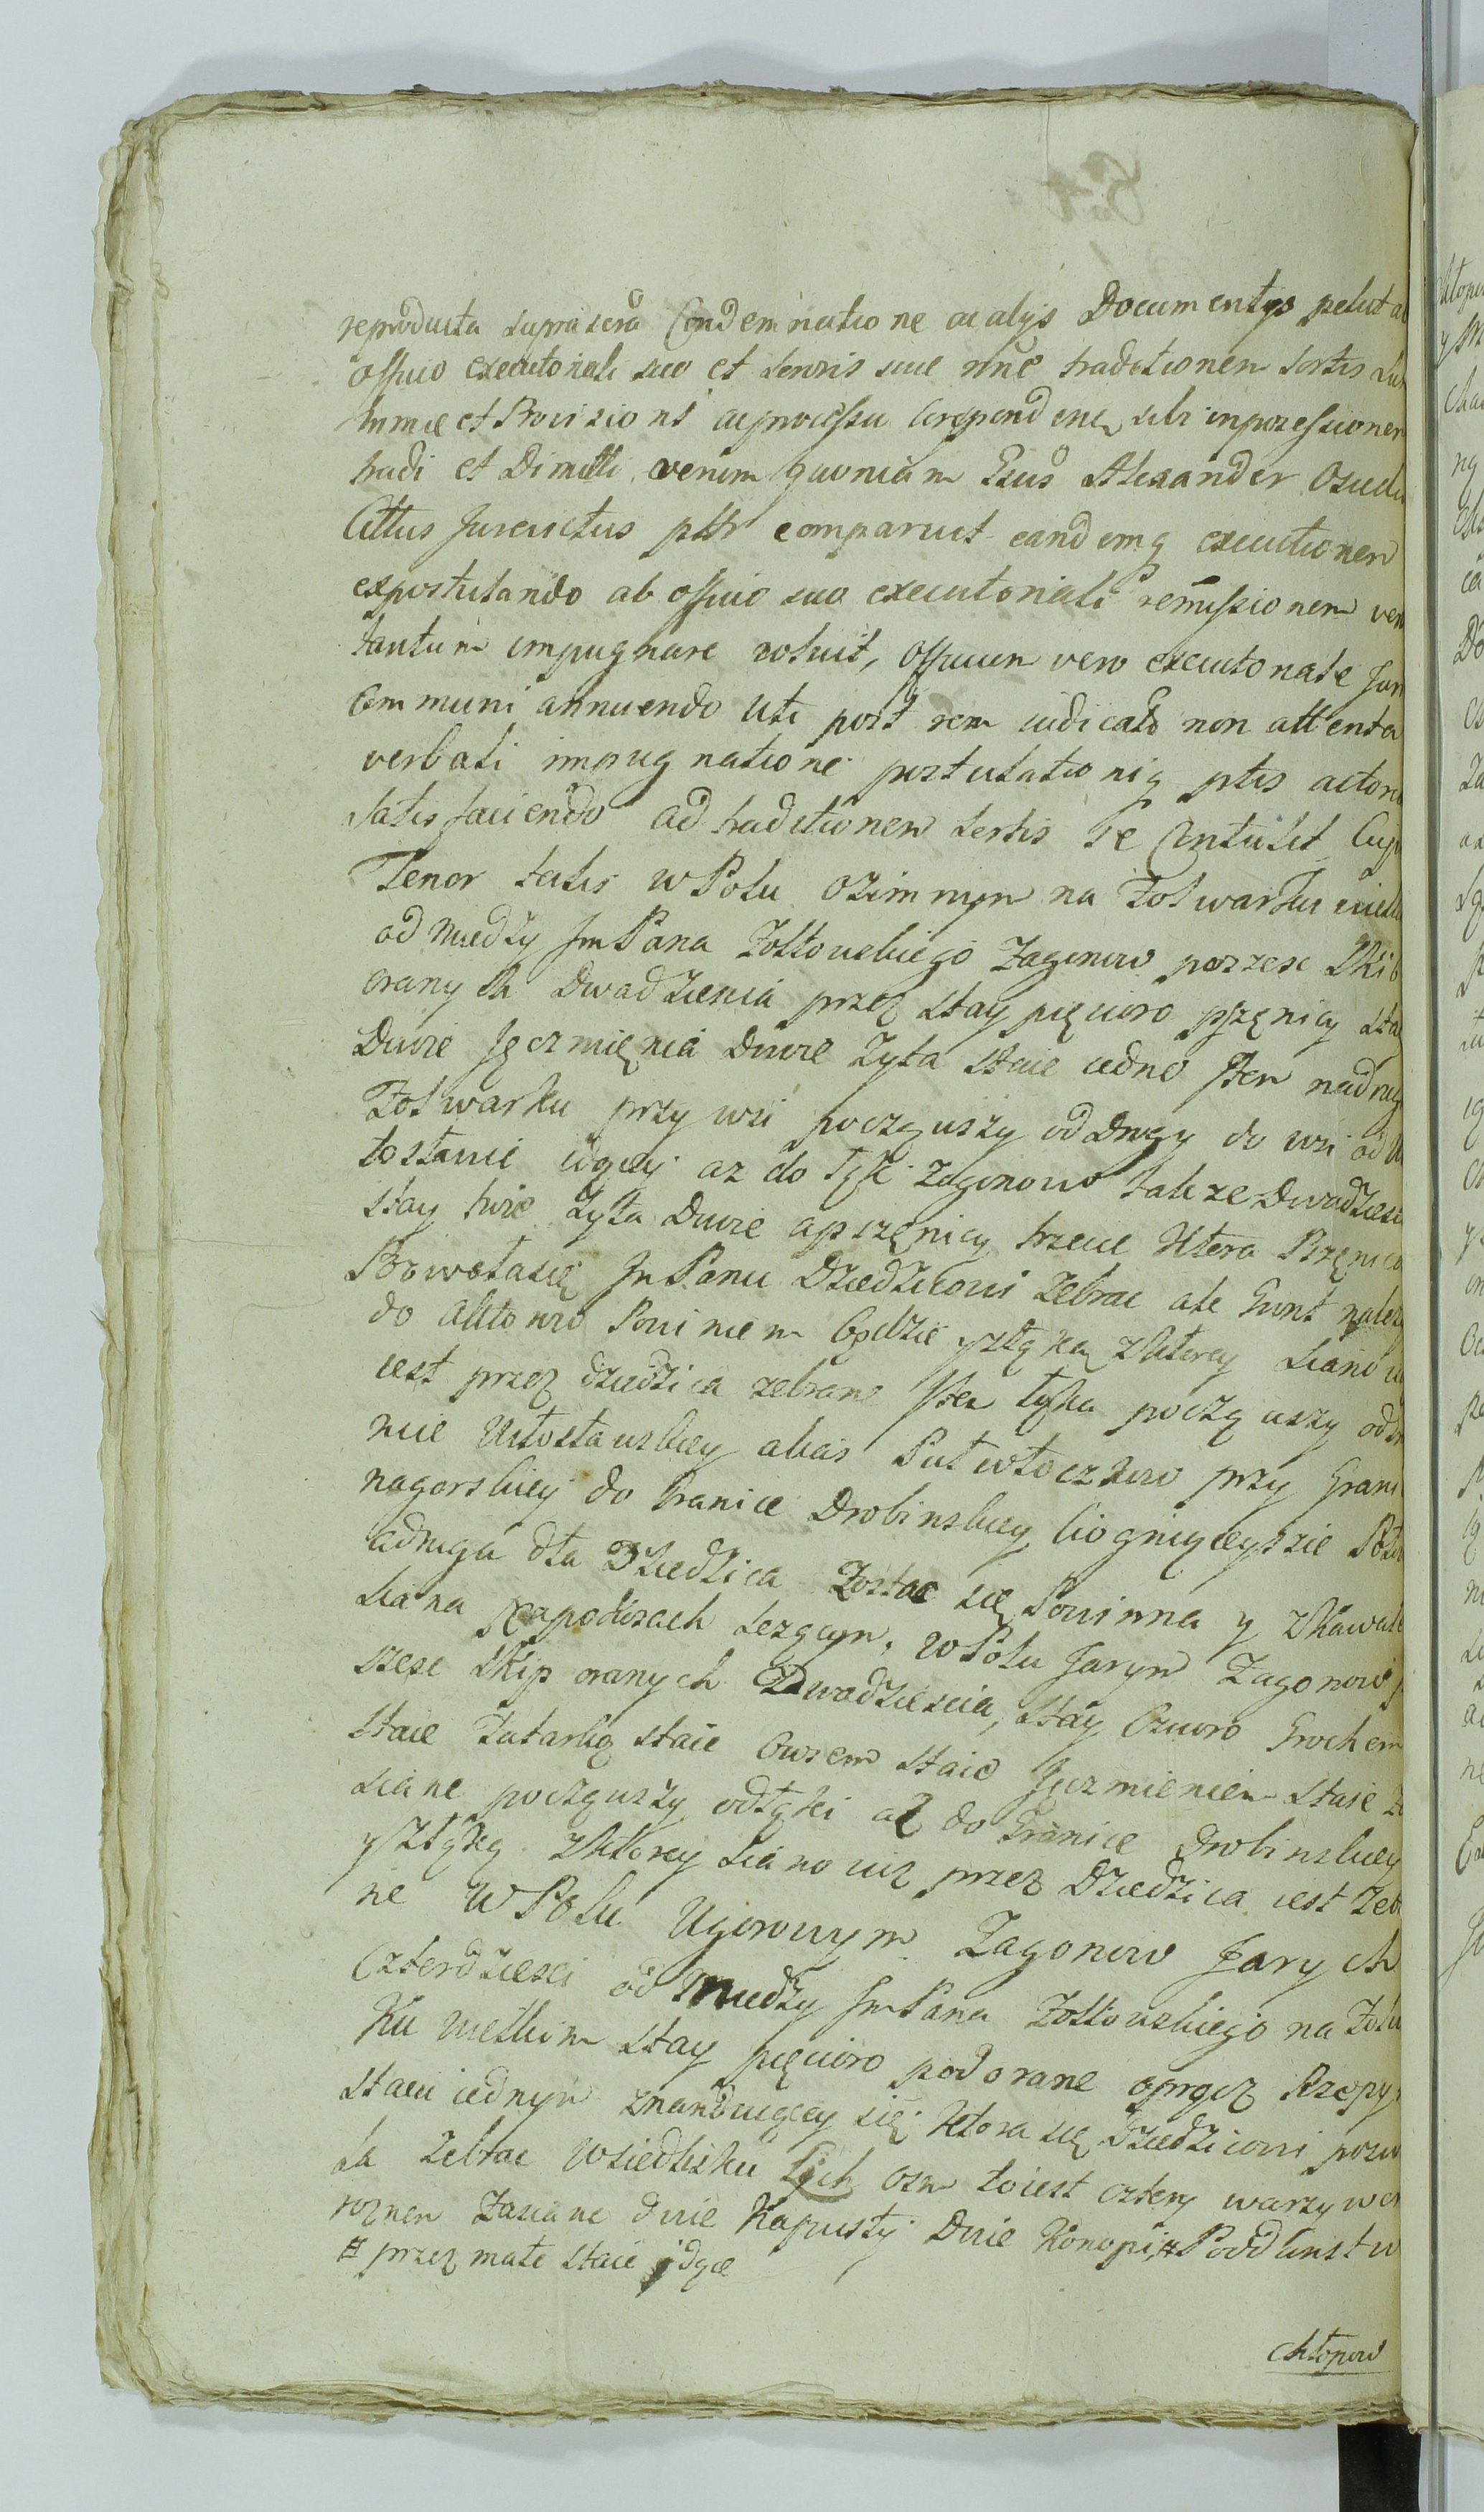 reproducta suprascra Condemnatione ac alys Documentys petut ab
officio executoriali suo et sensris suae nne traditionem sortis
summae et Provisions ac processu correspondeng sibi inpossessionem
tradi et Dimitti verum quoniam Gsus Alexander
Cittus Jurevictus pttr comparuit eandemq executionem
expostulando ab officio suo executoriali remissionem
tantum impugnare voluit, officium vero executoriale Juri
Communi annuendo Uti post rem iudicato non attenta
verbali impugnatione postulationiq ptis actore
satisfaciendo ad traditionem sortis se Contulit Cujus
Tenor talis w Polu ozimnym na Folwarku
od miedzy Jm Pana Zołtowskiego Zagonow poszesc Skib
oranych Dwadziescia przez stay pięcioro pszęnicy staie
Dwie Jęczmięnia Dwie Zyta staie iedno Item nadrugim
Folwarku przy wsi począwszy od Drogy do wsi od
tostawie idącey az do Łąk zagonow takze Dwadziescia
stay troie Zyta Dwoie apszęnicy trzecie Ktora Pszęnica
Pozwolasię Jm Panu Dziedzicowi Zebrac ale Grunt nalezy
do Aktorow Powinien będzie yzłąką zktorey siano iuz
iest przez dziedzica zebrane Item łąka począwszy od
nice Ułostawskiey alias Puł włoczkow przy Grani
nagorskiey do Granice Drobinskiey ciągnącey się
adruga dla Dziedzica Zostac się Powinna y zkawałem
siana Napodosach lezącym. w Polu Jarym Zagonow po
szesc skip oranych Dwadziescia, stay Czworo Grochem
staie Tatarką staie Owsem staie Jęczmieniem staie
siane począwszy odłąki aż do Granice Drobinskiey
yzłąką zktorey siano iuz przez Dziedzica iest Zebra
ne w Polu Ugorowym Zagonow Jarych
Czterdziesci od Miedzy Jm Pana Zołtowskiego na Folwar
ku wielkim stay pięcioro podorane oprocz Rzepy
staiu iednym znayduiącey się Ktora się Dziedzicowi pozwa
la Zebrac wsiedlisku Łęch osm toiest cztery warzywem
roznem Zasiane dwie Kapusty Dwie Konopi # Poddanstw
# przez małe staie idące
chłopow